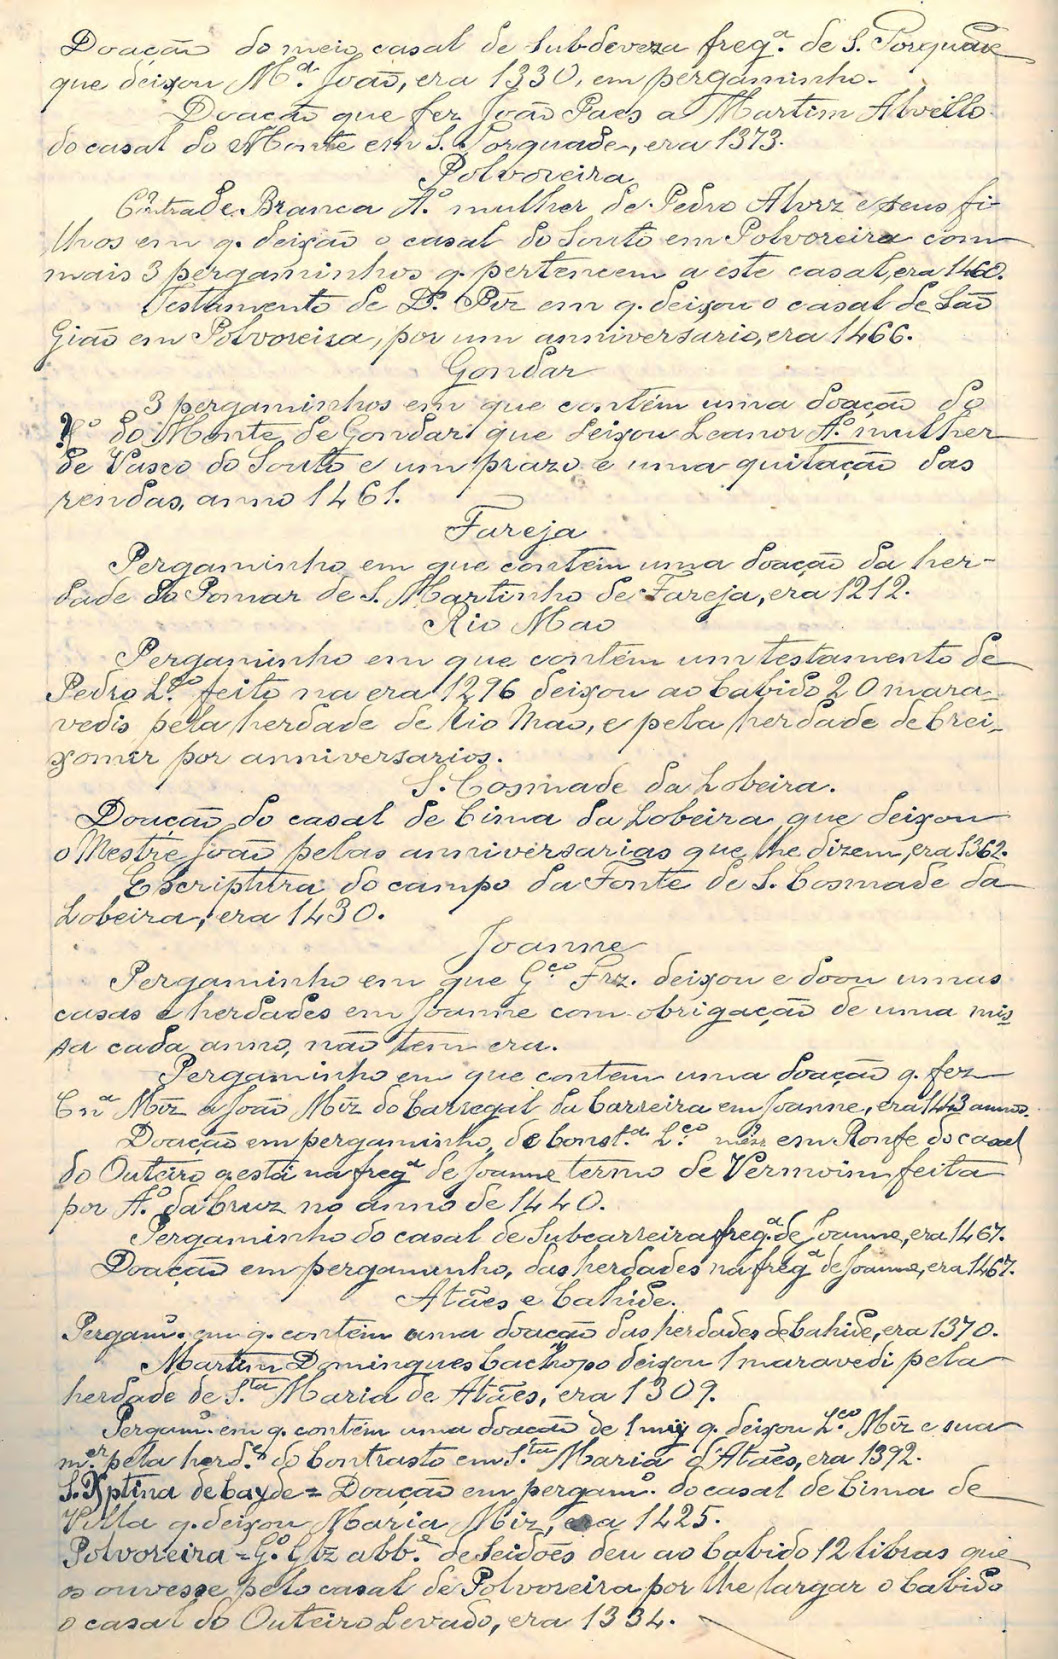 Doação do meio casal de Subdeveza freg.ª de S. Torquade
que deixou M.ª João, era 1330, em pergaminho.
Doação que fez João Paes a Martim Alvello
do casal do Monte em S. Torquade, era 1373.
Polvoreira
Contra de Branca A.º mulher de Pedro Alvrz e seus fi-
lhos em q. deixão o casal do Souto em Polvoreira com
mais 3 pergaminhos q. pertencem a este casal, era 1460.
Testamento de P.º Piz em q. deixou o casal de São
Gião em Polvoreira, por um anniversario, era 1466.
Gondar
3 pergaminhos em que contém uma doação do
do Monte de Gondar que deixou Leanor A.º mulher
de Vasco do Souto e um prazo e uma quitação das
rendas, anno 1461.
Fareja
Pergaminho em que contém uma doação da her-
dade do Pomar de S. Martinho de Fareja, era 1212.
Rio Mao
Pergaminho em que contém um testamento de
Pedro L.ço feito na era 1296 deixou ao Cabido 20 mara-
vedis pela herdade de Rio Mao, e pela herdade de Crei-
xomir por anniversarios.
S. Cosmade da Lobeira.
Doação do casal de Cima da Lobeira que deixou
o Mestre João pelas anniversarias que lhe dizem, era 1362.
Escriptura do campo da Fonte de S. Cosmade da
Lobeira, era 1430.
Joanne
Pergaminho em que G.ço Frz. deixou e doou umas
casas e herdades em Joanne com obrigação de uma mis-
sa cada anno, não tem era.
Pergaminho em que contém uma doação q. fez
Cn.ª Miz a João Miz do Carregal da Barreira em Joanne, era 1443 annos.
Doação em pergaminho, de Const.ª L.ço em Ronfe do casal
do Outeiro q. está na freg.ª de Joanne termo de Vermoim feita
por A.º da Cruz no anno de 1440.
Pergaminho do casal de Subcarreira freg.ª de Joanne, era 1467.
Doação em pergaminho, das herdades na freg.ª de Joanne, era 1467.
Atães e Cahide.
Pergam.º em q. contém uma doação das herdades de Cahide, era 1370.
Martim Domingues Cachopo deixou 1 maravedi pela
herdade de S.ta Maria de Atães, era 1309.
Pergam.º em q. contém uma doação de 1 q. deixou L.ço Miz e sua
m.er pela herd.e do Contrasto em S.ta Maria d'Atães, era 1392.
S. Xptina de Cayde = Doação em pergam.º do casal de Cima de
Villa q. deixou Maria Miz, era 1425.
Polvoreira = G.º Glz abb.e de Seidões deu ao Cabido 12 libras que
os ouvesse pelo casal de Polvoreira por lhe largar o Cabido
o casal do Outeiro Levado, era 1334.